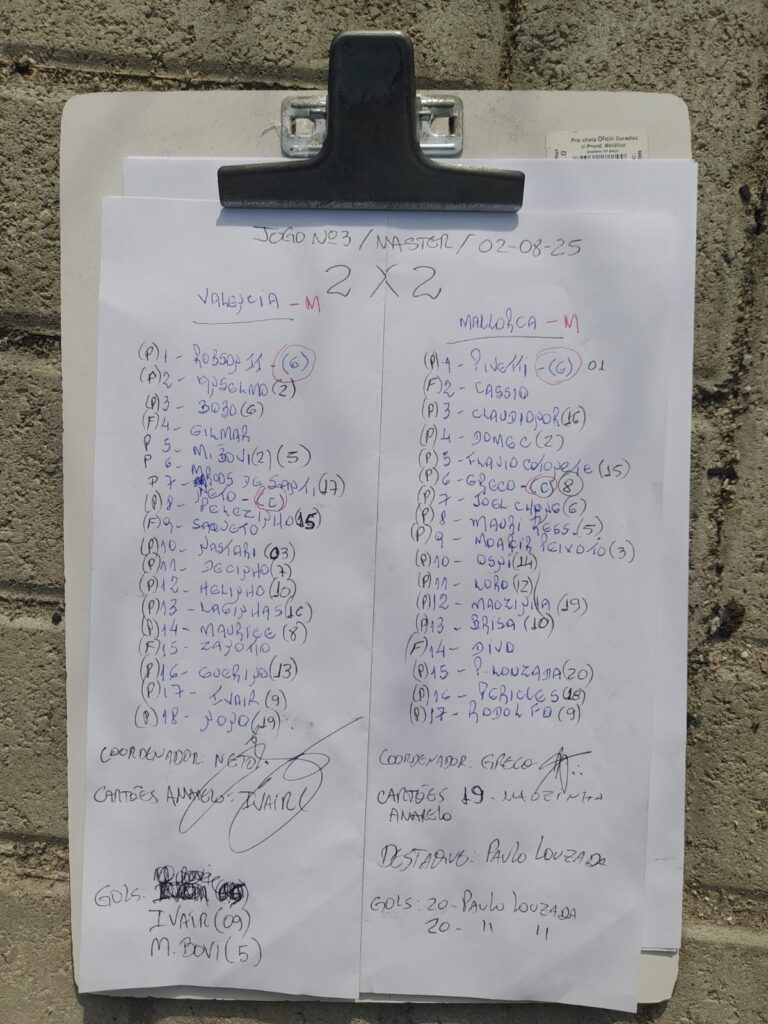 Prancheta Oficio Duraplac
c/ Prend. Metálico
JOGO Nº3 / MASTER / 02-08-25
2 X 2
VALENCIA - M
(P) 1 - ROBSON JJ - (G)
(P) 2 - ANSELMO (2)
(P) 3 - BOZO (6)
(F) 4 - GILMAR
P 5 - M. BOVI (2) (5)
P 6 - MROOS DE SANTI (17)
P 7 - NETO - (C)
(P) 8 - PEREZINHO (15)
(F) 9 - SARNETO
(P) 10 - NASTARI 03
(P) 11 - DECINHO (7)
(P) 12 - HELINHO (10)
(P) 13 - LAGINHAS (16)
(P) 14 - MAURICE (8)
(F) 15 - ZANOTTO
(P) 16 - GUERINO (13)
(P) 17 - IVAIR (9)
(P) 18 - NONO (19)
COORDENADOR: NETO
CARTÕES AMARELO: IVAIR
GOLS:
IVAIR (09)
M. BOVI (5)
MALLORCA - M
(P) 1 - PINETTI - (G) 01
(F) 2 - CASSIO
(P) 3 - CLAUDIONOR (16)
(P) 4 - DOMEC (2)
(P) 5 - FLAVIO (15)
(P) 6 - GRECO - (C) (8)
(P) 7 - JOEL (6)
(P) 8 - MAURI RESS. (5)
(P) 9 - MOACIR PEIXOTO (3)
(P) 10 - OSNI (14)
(P) 11 - LORO (12)
(P) 12 - MAOZINHA (19)
(P) 13 - BRISA (10)
(F) 14 - DINO
(P) 15 - P. LOUZADA (20)
(P) 16 - PERICLES (18)
(P) 17 - RODOLFO (9)
COORDENADOR: GRECO
CARTÕES 19 - MAOZINHA
AMARELO
DESTAQUE: PAULO LOUZADA
GOLS: 20 - PAULO LOUZADA
20 - " "